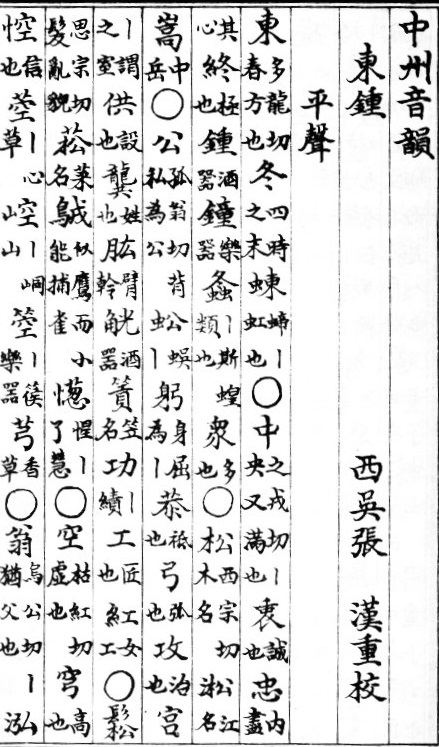 中州音韻
東鍾 西吳張 漢重校
平聲
東多龍切春方也冬四時之末蝀螮丨虹也○中之戎切丨央又滿也衷誠也忠內盡
其心終極也鍾酒器鐘樂器螽丨斯蝗類也衆多也○松西宗切木名淞江名
嵩中岳○公孤翁切背私為公蚣蜈丨躬身屈為丨恭祗也弓弧也攻治也宮
丨謂之室供設也龔姓也肱臂幹觥酒器篢笠名功丨績工匠也紅女工○鬆
思宗切髮亂貌菘菜名似鷹而小能捕雀憽惺丨了慧○空枯紅切虛也穹高也
悾信也丨心草崆丨峒山箜丨篌樂器芎香草○翁烏公切丨猶父也泓